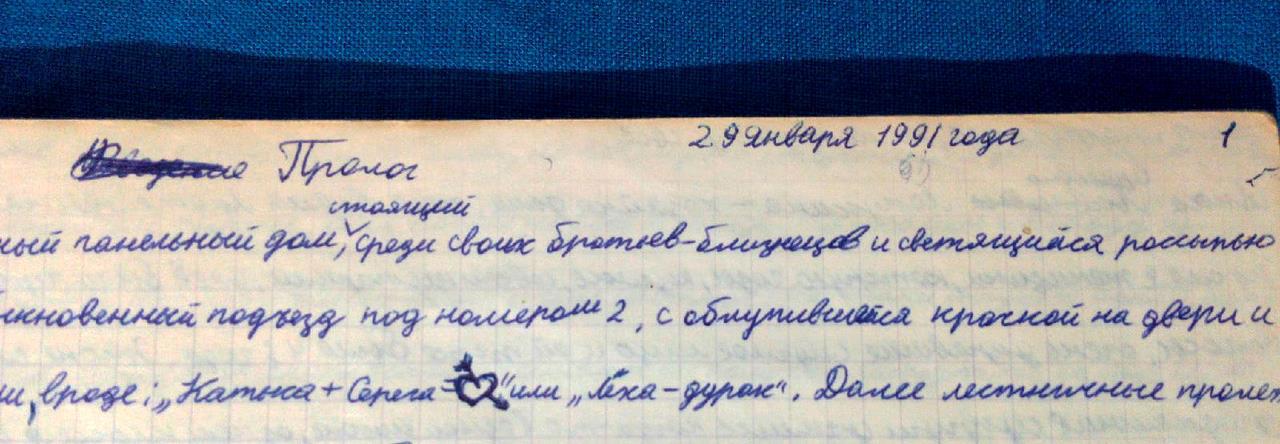 29 января 1991 года 1
Пролог
стоящий
ный панельный дом, среди своих братьев-близнецов и светящийся россыпью
кновенный подъезд под номером 2, с облупившейся краской на двери и
ми, вроде: „Катька + Серега =" или „Лёха-дурак". Далее лестничные проле